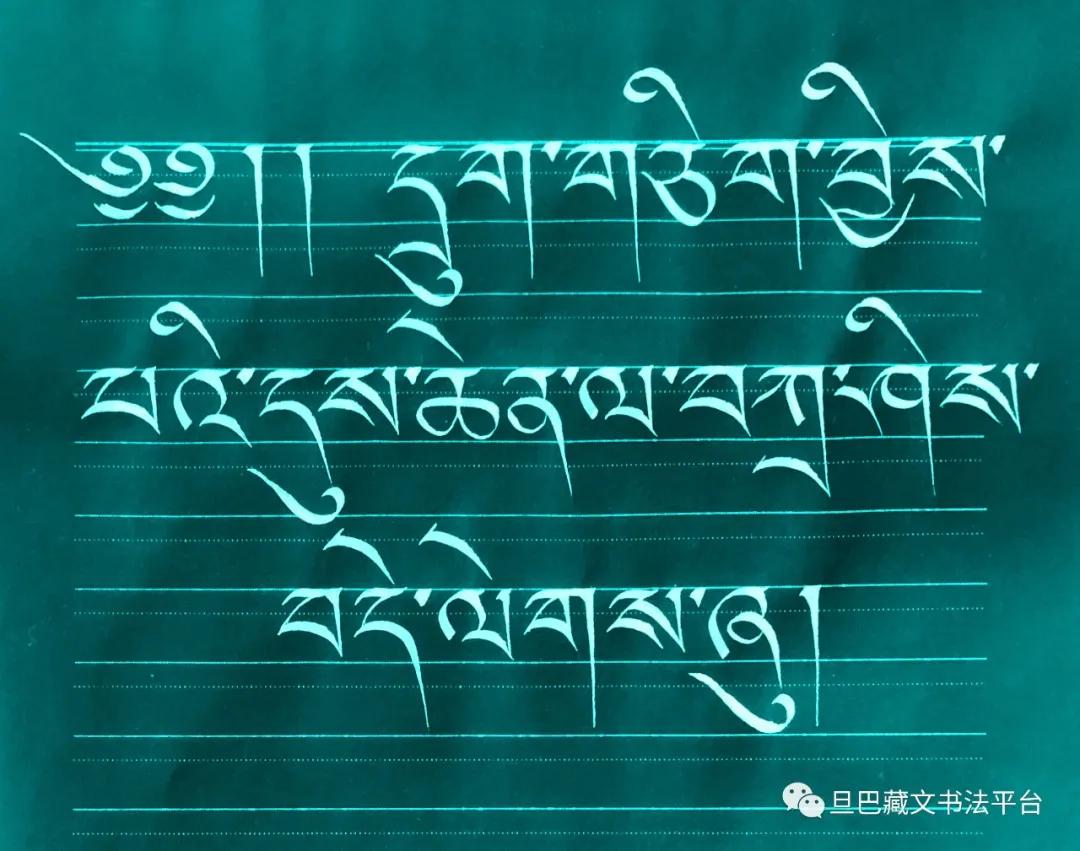 ༄༅།། དྲུག་གཅིག་བྱིས་
པའི་དུས་ཆེན་ལ་བཀྲ་ཤིས་
བདེ་ལེགས་ཞུ།
旦巴藏文书法平台